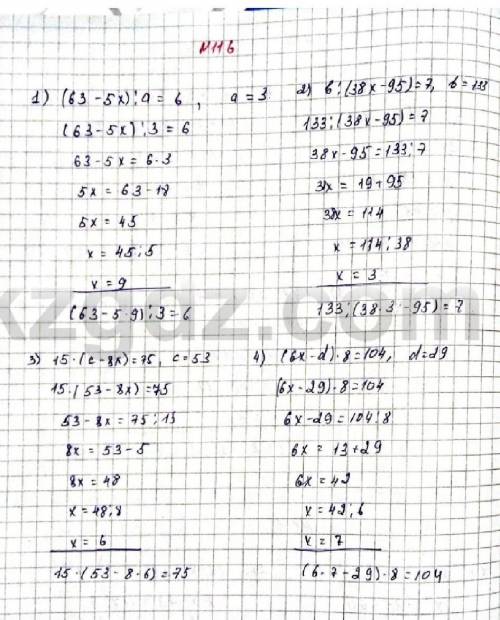 №116
1) (63-5x):a=6, a=3
(63-5x):3=6
63-5x=6·3
5x=63-18
5x=45
x=45:5
x=9
(63-5·9):3=6
2) b:(38x-95)=7, b=133
133:(38x-95)=7
38x-95=133:7
38x=19+95
38x=114
x=114:38
x=3
133:(38·3-95)=7
kzgdz.com
3) 15·(c-8x)=75, c=53
15·(53-8x)=75
53-8x=75:15
8x=53-5
8x=48
x=48:8
x=6
15·(53-8·6)=75
4) (6x-d)·8=104, d=29
(6x-29)·8=104
6x-29=104:8
6x=13+29
6x=42
x=42:6
x=7
(6·7-29)·8=104